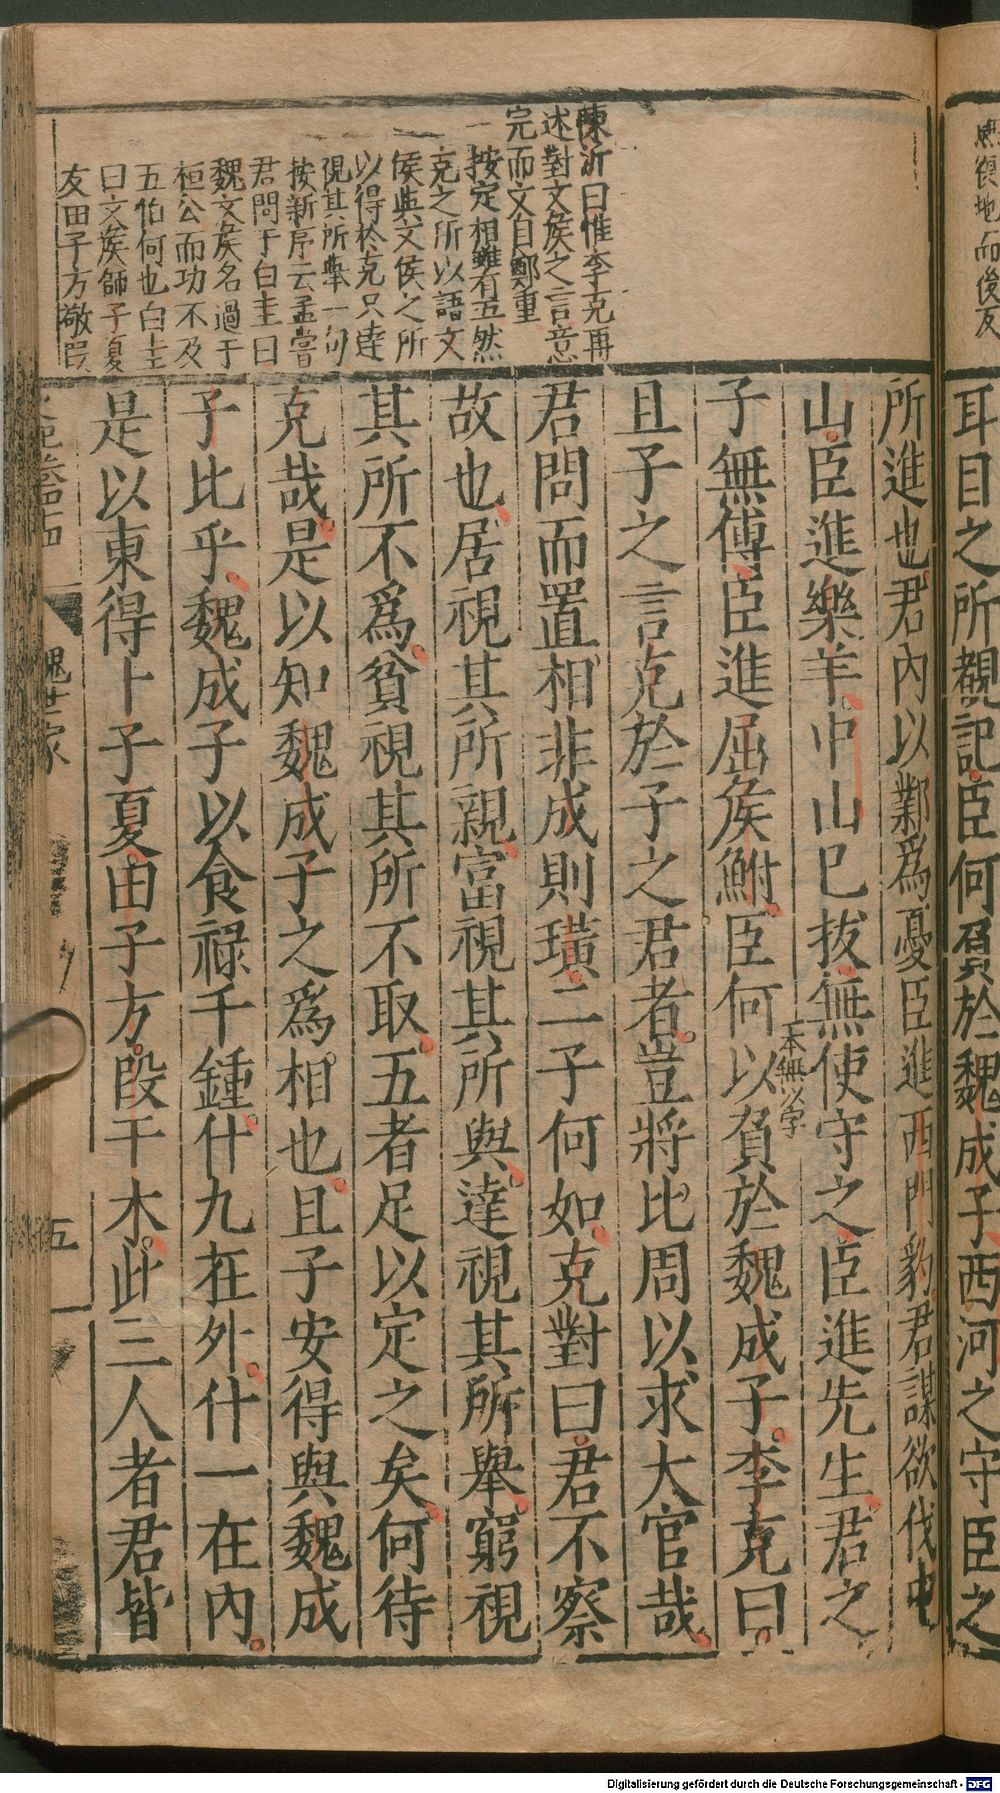 應復地而後反
耳目之所覩記臣何負於魏成子西河之守臣之
陳沂曰惟李克再
述對文侯之言意
完而文自鄭重
按定相雖有五然
克之所以語文
侯與文侯之所
以得於克只達
視其所舉一句
按新序云孟嘗
君問于白圭曰
魏文侯名過于
桓公而功不及
五伯何也白圭
曰文侯師子夏
友田子方敬段
所進也君內以鄴爲憂臣進西門豹君謀欲伐中
山臣進樂羊中山已拔無使守之臣進先生君之
子無傅臣進屈侯鮒臣何以負於魏成子李克曰
一本無以字
且子之言克於子之君者豈將比周以求大官哉
君問而置相非成則璜二子何如克對曰君不察
故也居視其所親富視其所與達視其所舉窮視
其所不爲貧視其所不取五者足以定之矣何待
克哉是以知魏成子之爲相也且子安得與魏成
子比乎魏成子以食祿千鍾什九在外什一在內
是以東得卜子夏田子方段干木此三人者君皆
魏世家
五
Digitalisierung gefördert durch die Deutsche Forschungsgemeinschaft - DFG